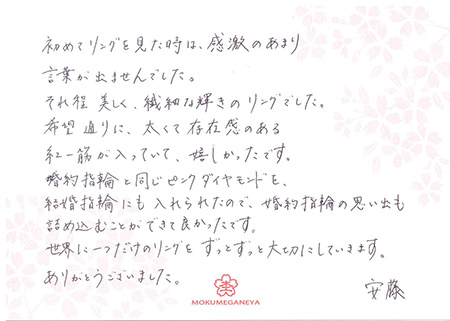 初めてリングを見た時は、感激のあまり
言葉が出ませんでした。
それ程美しく、繊細な輝きのリングでした。
希望通りに、太くて存在感のある
紅一筋が入っていて、嬉しかったです。
婚約指輪と同じピンクダイヤモンドを、
結婚指輪にも入れられたので、婚約指輪の思い出も
詰め込むことができて良かったです。
世界に一つだけのリングをずっとずっと大切にしていきます。
ありがとうございました。
安藤
MOKUMEGANEYA